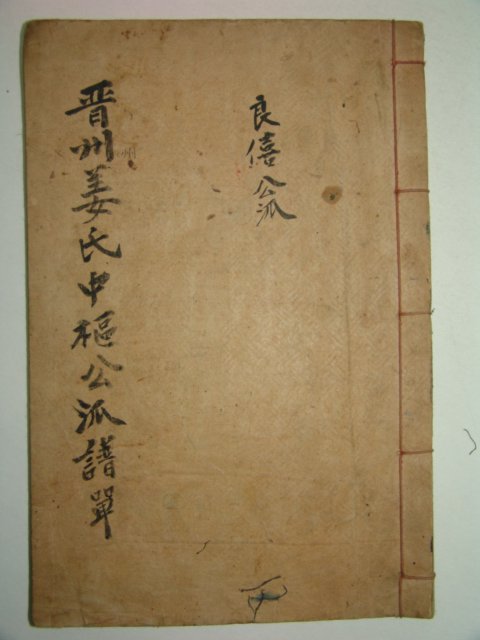 晋州姜氏中樞公派譜單
良僖公派